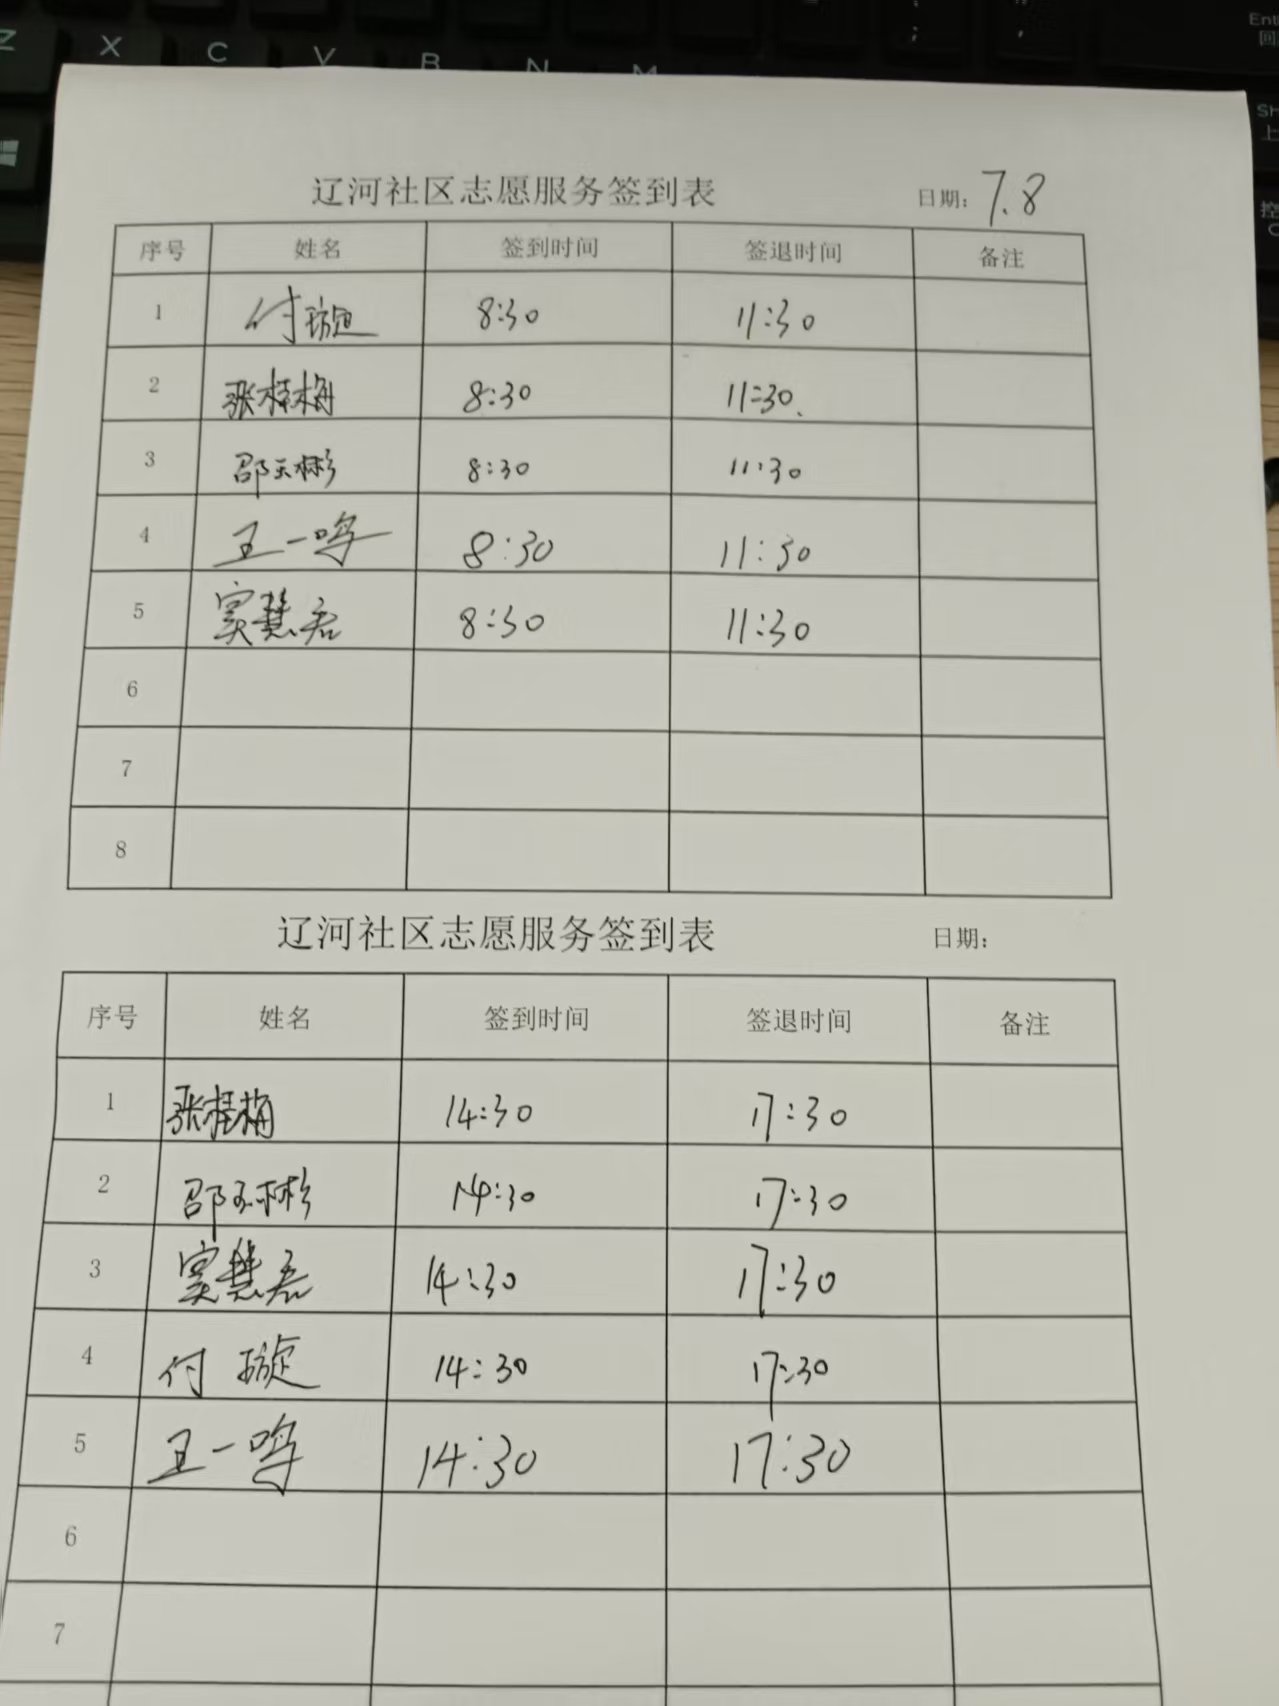 Z X C V B N M
; ,
Ent
回
SH
上
控
C
辽河社区志愿服务签到表 日期: 7.8
序号 姓名 签到时间 签退时间 备注
1 付璇 8:30 11:30
2 张桂梅 8:30 11:30
3 邵玉彬 8:30 11:30
4 王一鸣 8:30 11:30
5 窦慧君 8:30 11:30
6
7
8
辽河社区志愿服务签到表 日期:
序号 姓名 签到时间 签退时间 备注
1 张桂梅 14:30 17:30
2 邵玉彬 14:30 17:30
3 窦慧君 14:30 17:30
4 付璇 14:30 17:30
5 王一鸣 14:30 17:30
6
7